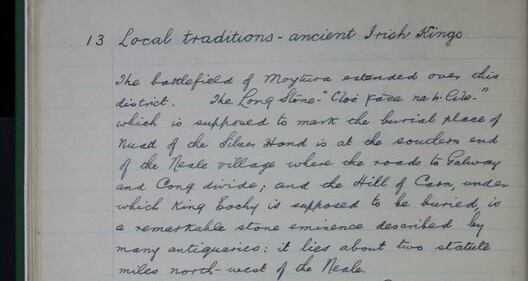 13 Local traditions - ancient Irish Kings
The battlefield of Moytura extended over this
district. The Long Stone - "Cloċ Fada na h-
which is supposed to mark the burial place of
Nuad of the Silver Hand is at the southern end
of the Neale village where the roads to Galway
and Cong divide; and the Hill of Carn, under
which King Eochy is supposed to be buried, is
a remarkable stone eminence described by
many antiquaries: it lies about two statute
miles north-west of the Neale.